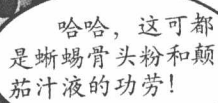 哈哈，这可都
是蜥蜴骨头粉和颠
茄汁液的功劳！